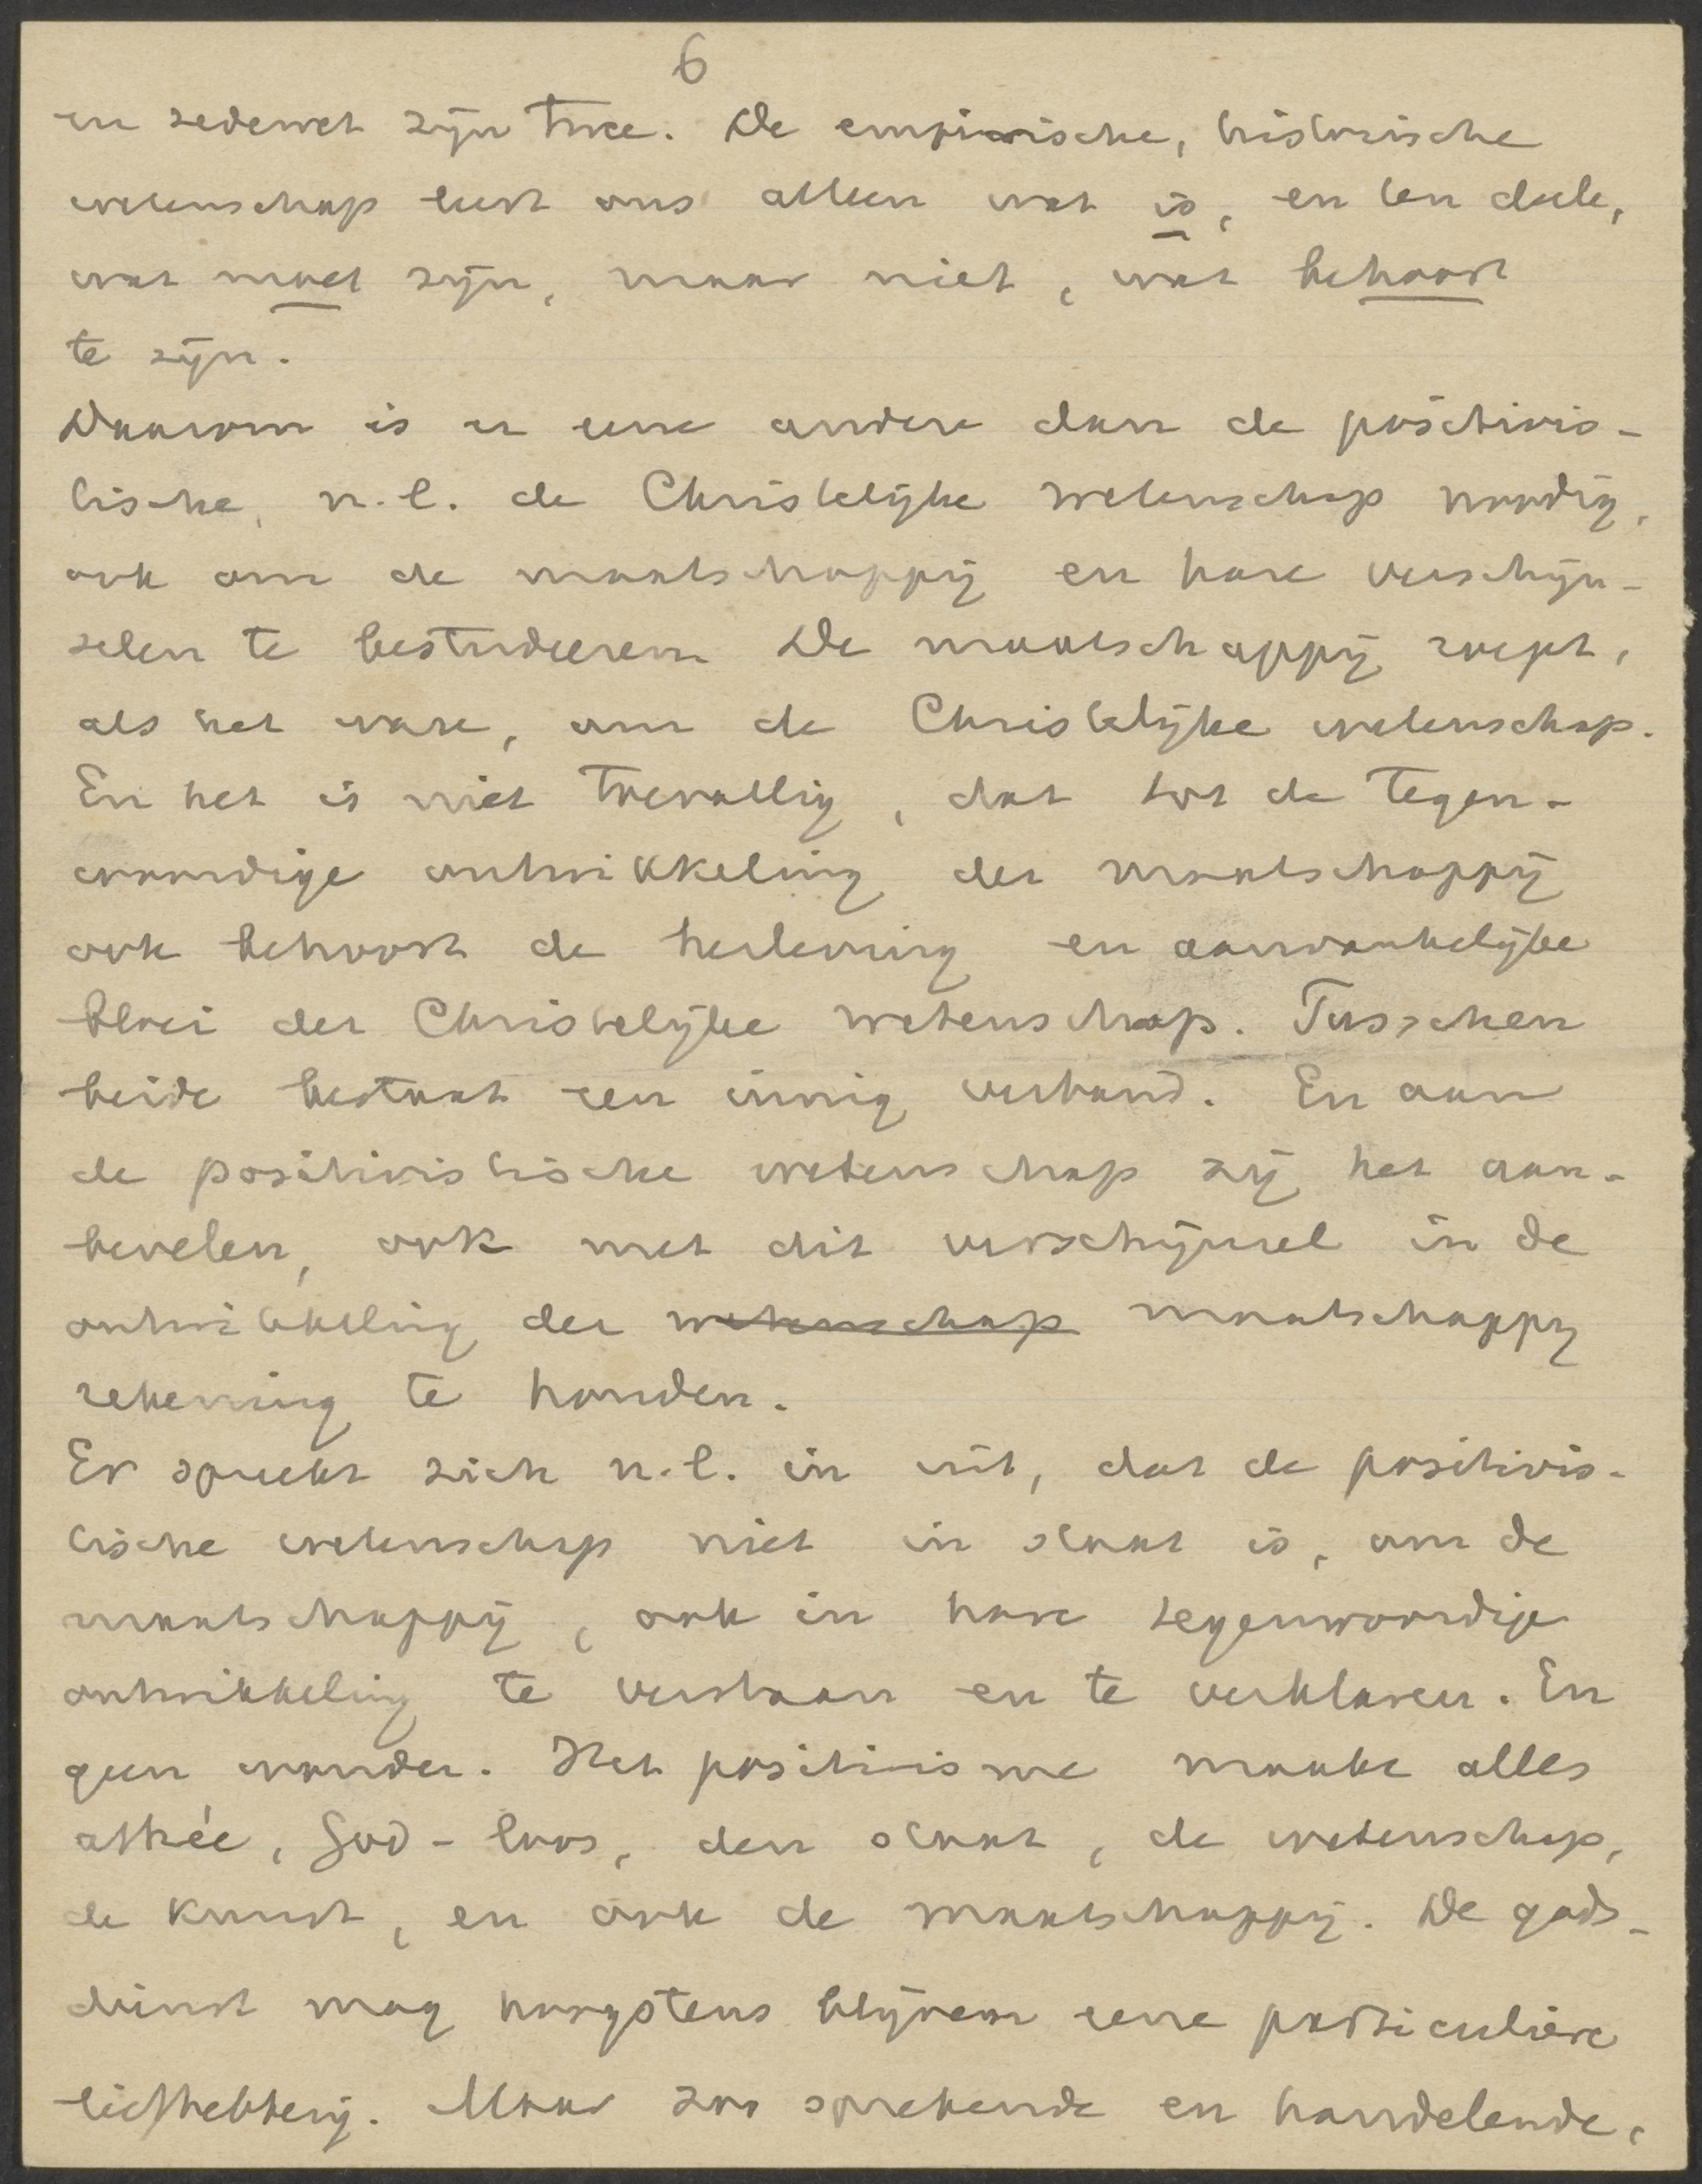 6
en zedewet zijn twee. De empirische, historische
wetenschap leert ons alleen wat is, en ten deele,
wat moet zijn, maar niet, wat behoort
te zijn.
Daarom is er eene andere dan de positivis-
tische, n.l. de Christelijke wetenschap noodig,
ook om de maatschappij en hare verschijn-
selen te bestudeeren. De maatschappij roept,
als het ware, om de Christelijke wetenschap.
En het is niet toevallig, dat tot de tegen-
woordige ontwikkeling der maatschappij
ook behoort de herleving en aanvankelijke
bloei der Christelijke wetenschap. Tusschen
beide bestaat een innig verband. En aan
de positivistische wetenschap zij het aan-
bevelen, ook met dit verschijnsel in de
ontwikkeling der wetenschap maatschappij
rekening te houden.
Er spreekt zich n.l. in uit, dat de positivis-
tische wetenschap niet in staat is, om de
maatschappij, ook in hare tegenwoordige
ontwikkeling te verstaan en te verklaren. En
geen wonder. Het positivisme maakte alles
athée, God-loos, den staat, de wetenschap,
de kunst, en ook de maatschappij. De gods-
dienst mag hoogstens blijven eene particuliere
liefhebberij. Maar zoo sprekende en handelende,